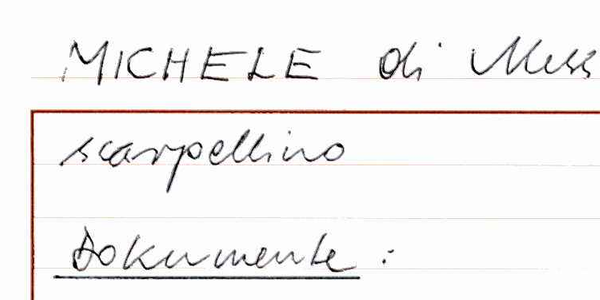 MICHELE di
scarpellino
Dokumente :